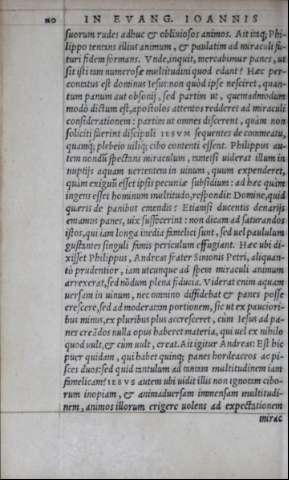 110 IN EVANG. IOANNIS
suorum rudes adhuc & obliuiosos animos. Ait itaq; Phi-
lippo tentans illius animum, & paulatim ad miraculi fu-
turi fidem formans. Vnde, inquit, mercabimur panes, ut
sit isti tam numerosæ multitudini quod edant? Hæc per-
contatus est dominus Iesus non quòd ipse nesciret, quan-
tum panum aut obsonij, sed partim ut, quemadmodum
modò dictum est, apostolos attentos redderet ad miraculi
considerationem: partim ut omnes discerent, quàm non
soliciti fuerint discipuli IESVM sequentes de commeatu,
quamq; plebeio uiliq; cibo contenti essent. Philippus au-
tem nondū spectans miraculum, tametsi uiderat illum in
nuptijs aquam uertentem in uinum, quum expenderet,
quàm exiguū esset ipsis pecuniæ subsidium: ad hæc quàm
ingens esset hominum multitudo, respondit: Domine, quid
quæris de panibus emendis? Etiamsi ducentis denarijs
emamus panes, uix sufficerint: non dicam ad saturandos
istos, qui iam longa inedia famelici sunt, sed uel paululum
gustantes singuli famis periculum effugiant. Hæc ubi di-
xisset Philippus, Andreas frater Simonis Petri, aliquan-
tò prudentior, iam utcunque ad spem miraculi animum
arrexerat, sed nōdum plena fiducia. Viderat enim aquam
uersam in uinum, nec omnino diffidebat & panes posse
crescere, sed ad moderatam portionem, sic ut ex paucior i-
bus minus, ex pluribus plus accresceret, cùm Iesus ad pa-
nes creādos nulla opus haberet materia, qui uel ex nihilo
quod uult, & cùm uult, creat. Ait igitur Andreas: Est hic
puer quidam, qui habet quinq; panes hordeaceos ac pi-
sces duos: sed quid tantulum ad tantam multitudinem iam
famelicam? IESVS autem ubi uidit illis non ignotam cibo-
rum inopiam, & animaduersam immensam multitudi-
nem, animos illorum erigere uolens ad expectationem
mirac